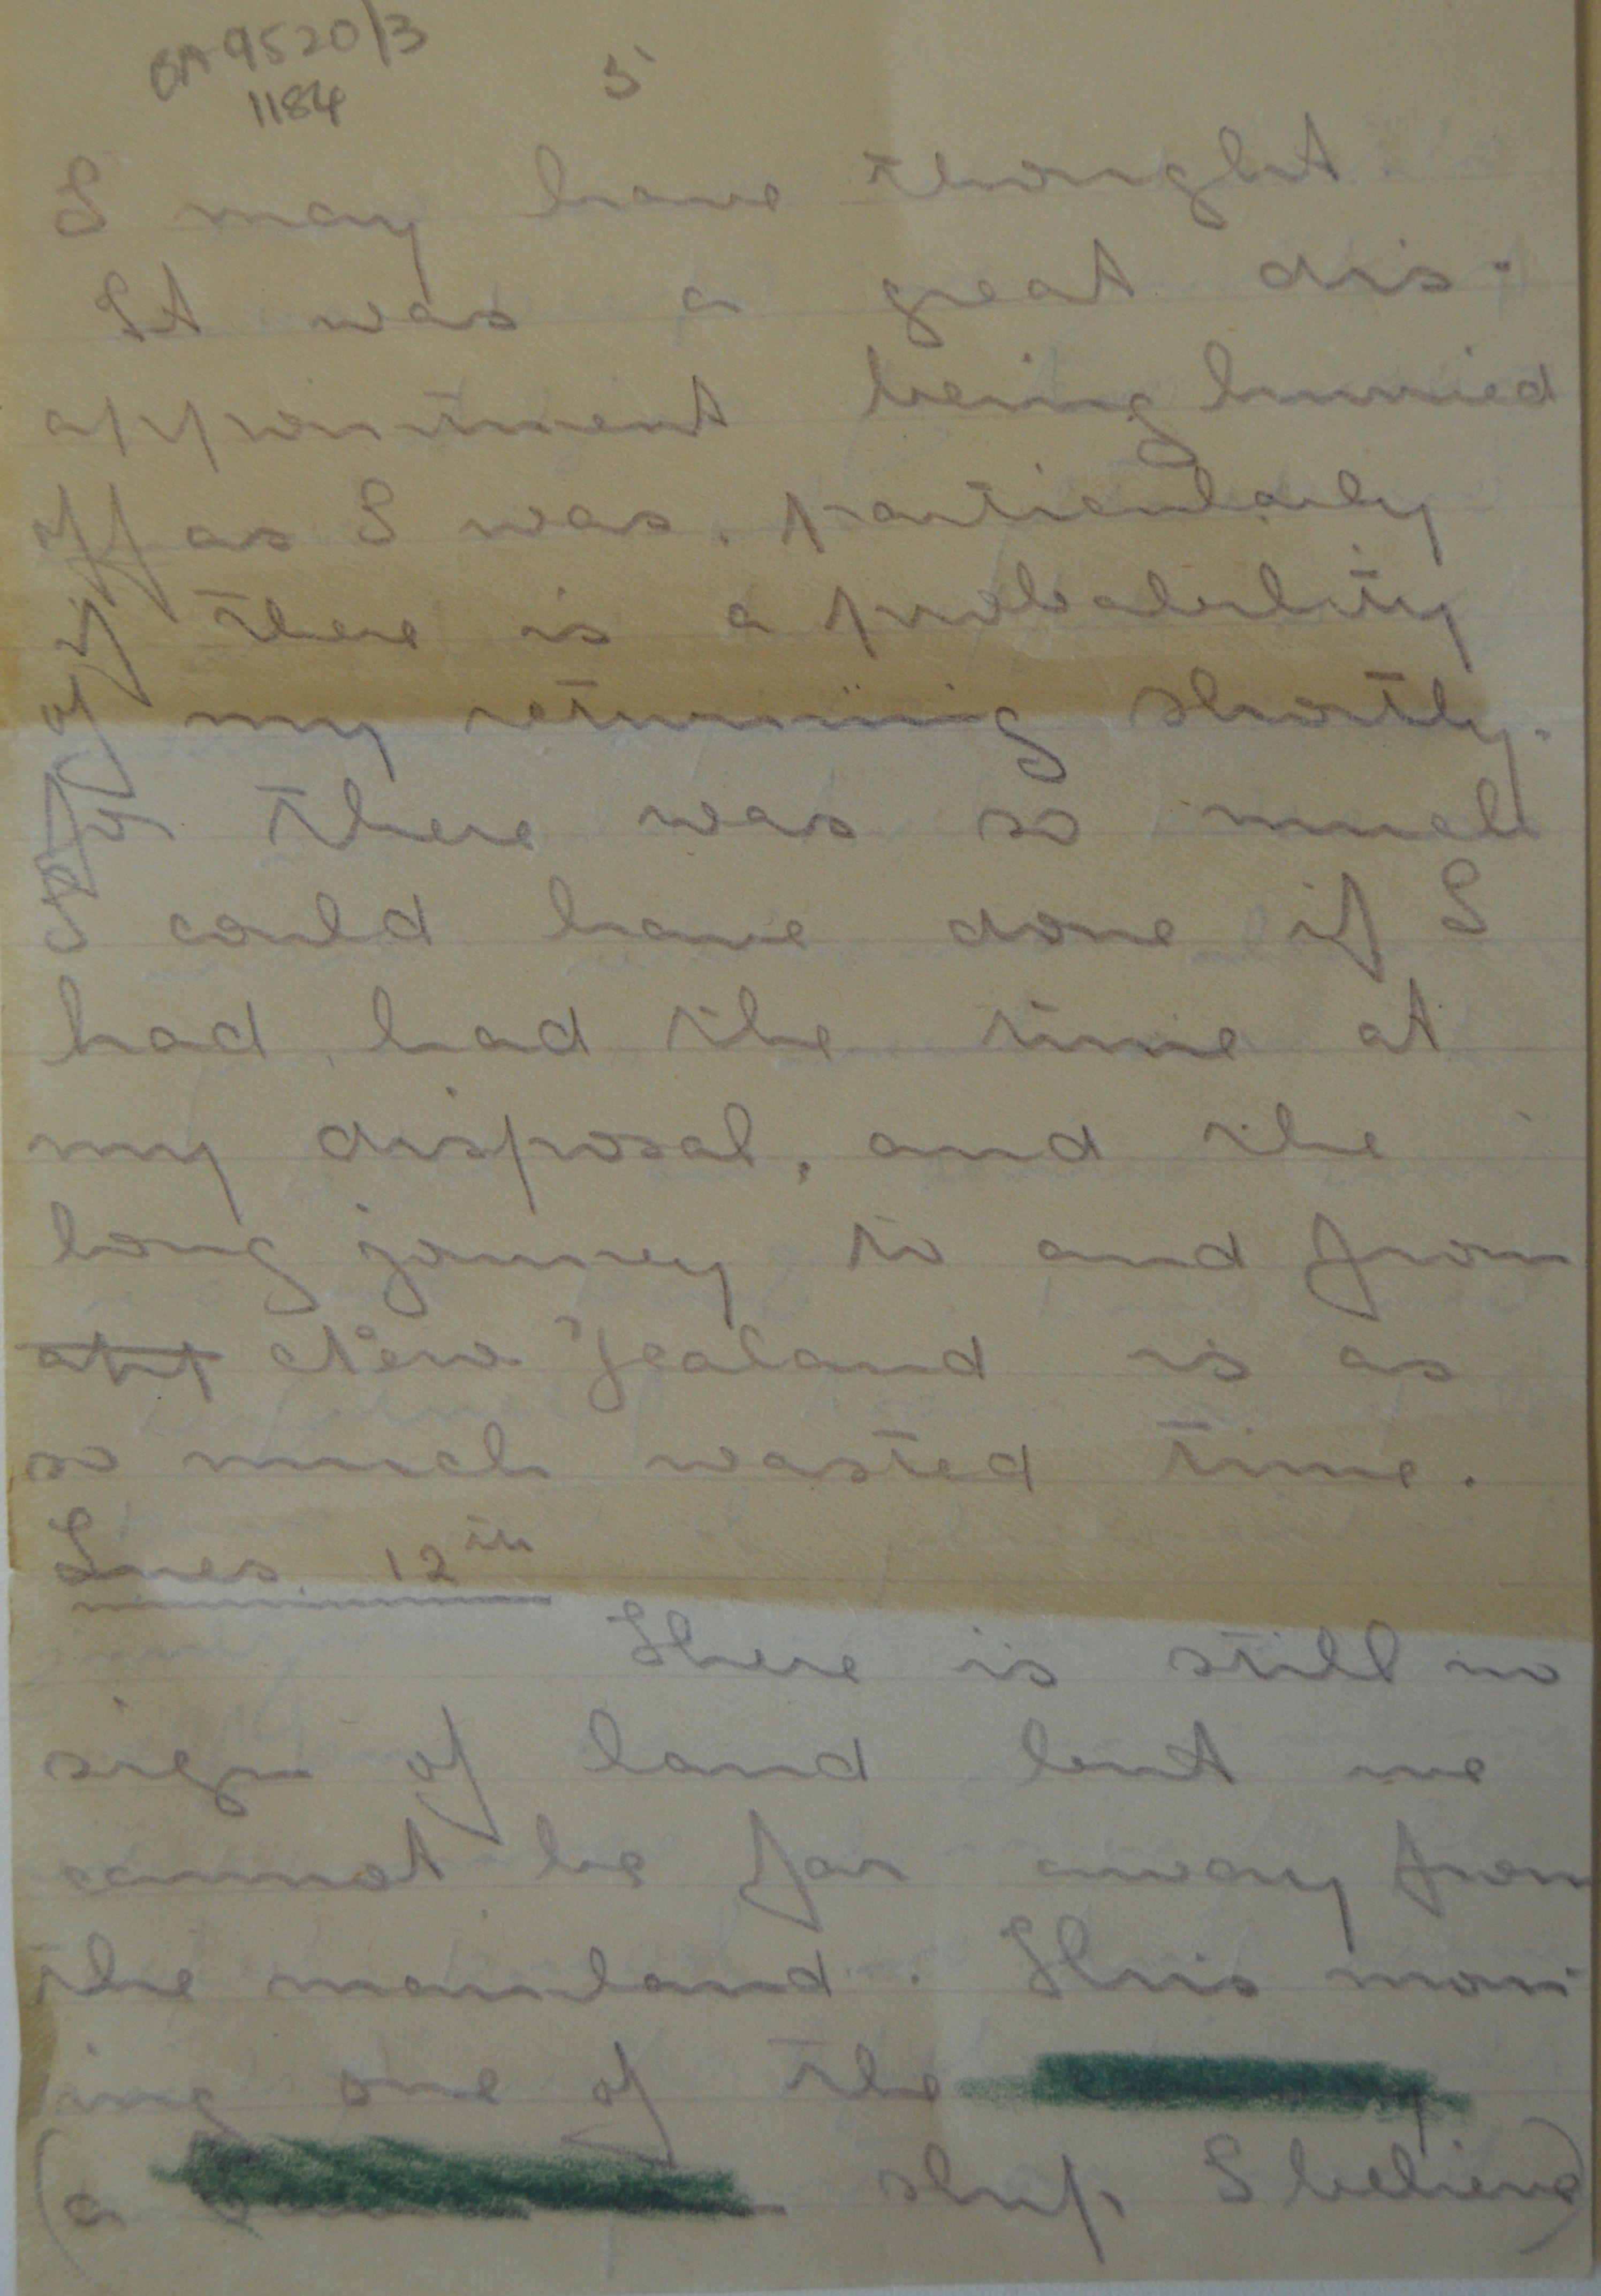 BA 9520/3
1184
5
I may have thought.
It was a great dis-
appointment being hurried
off as I was. particularly
if there is a probability
of my returning shortly.
for there was so much
I could have done if I
had had the time at
my disposal, and the
long journey to and from
New Zealand is as
so much wasted time.
Tues. 12th
There is still no
sign of land but we
cannot be far away from
the mainland. This morn
ing one of the
(a ship, I believe)